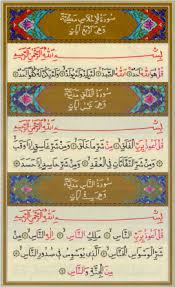 سُورَةُ الْاِخْلَاصِ مَكِّيَّةٌ
وَهِيَ اَرْبَعُ اٰيَاتٍ
بِسْمِ اللهِ الرَّحْمٰنِ الرَّحِيمِ
قُلْ هُوَ اللهُ اَحَدٌ اَللهُ الصَّمَدُ لَمْ يَلِدْ وَلَمْ يُولَدْ وَلَمْ يَكُنْ لَهُ كُفُوًا اَحَدٌ
سُورَةُ الْفَلَقِ مَدَنِيَّةٌ
وَهِيَ خَمْسُ اٰيَاتٍ
بِسْمِ اللهِ الرَّحْمٰنِ الرَّحِيمِ
قُلْ اَعُوذُ بِرَبِّ الْفَلَقِ مِنْ شَرِّ مَا خَلَقَ وَمِنْ شَرِّ غَاسِقٍ اِذَا وَقَبَ
وَمِنْ شَرِّ النَّفَّاثَاتِ فِي الْعُقَدِ وَمِنْ شَرِّ حَاسِدٍ اِذَا حَسَدَ
سُورَةُ النَّاسِ مَدَنِيَّةٌ
وَهِيَ سِتُّ اٰيَاتٍ
بِسْمِ اللهِ الرَّحْمٰنِ الرَّحِيمِ
قُلْ اَعُوذُ بِرَبِّ النَّاسِ مَلِكِ النَّاسِ اِلٰهِ النَّاسِ مِنْ
شَرِّ الْوَسْوَاسِ الْخَنَّاسِ اَلَّذِي يُوَسْوِسُ فِي صُدُورِ النَّاسِ
مِنَ الْجِنَّةِ وَالنَّاسِ